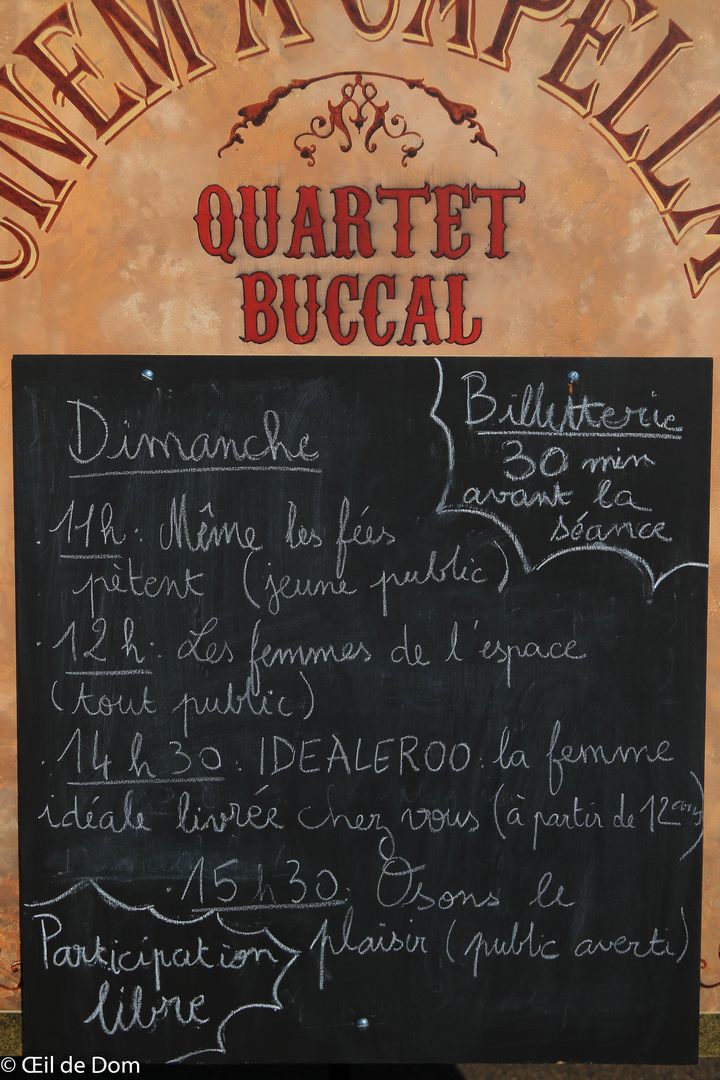 CINEM'A'CAPELLA
QUARTET
BUCCAL
Dimanche
Billetterie
30 min
avant la
séance
. 11h. Même les fées
pètent (jeune public)
. 12h. Les femmes de l'espace
(tout public)
. 14h30. IDEALEROO. la femme
idéale livrée chez vous (à partir de 12 ans)
. 15h30. Osons le
plaisir (public averti)
Participation
libre
© Œil de Dom